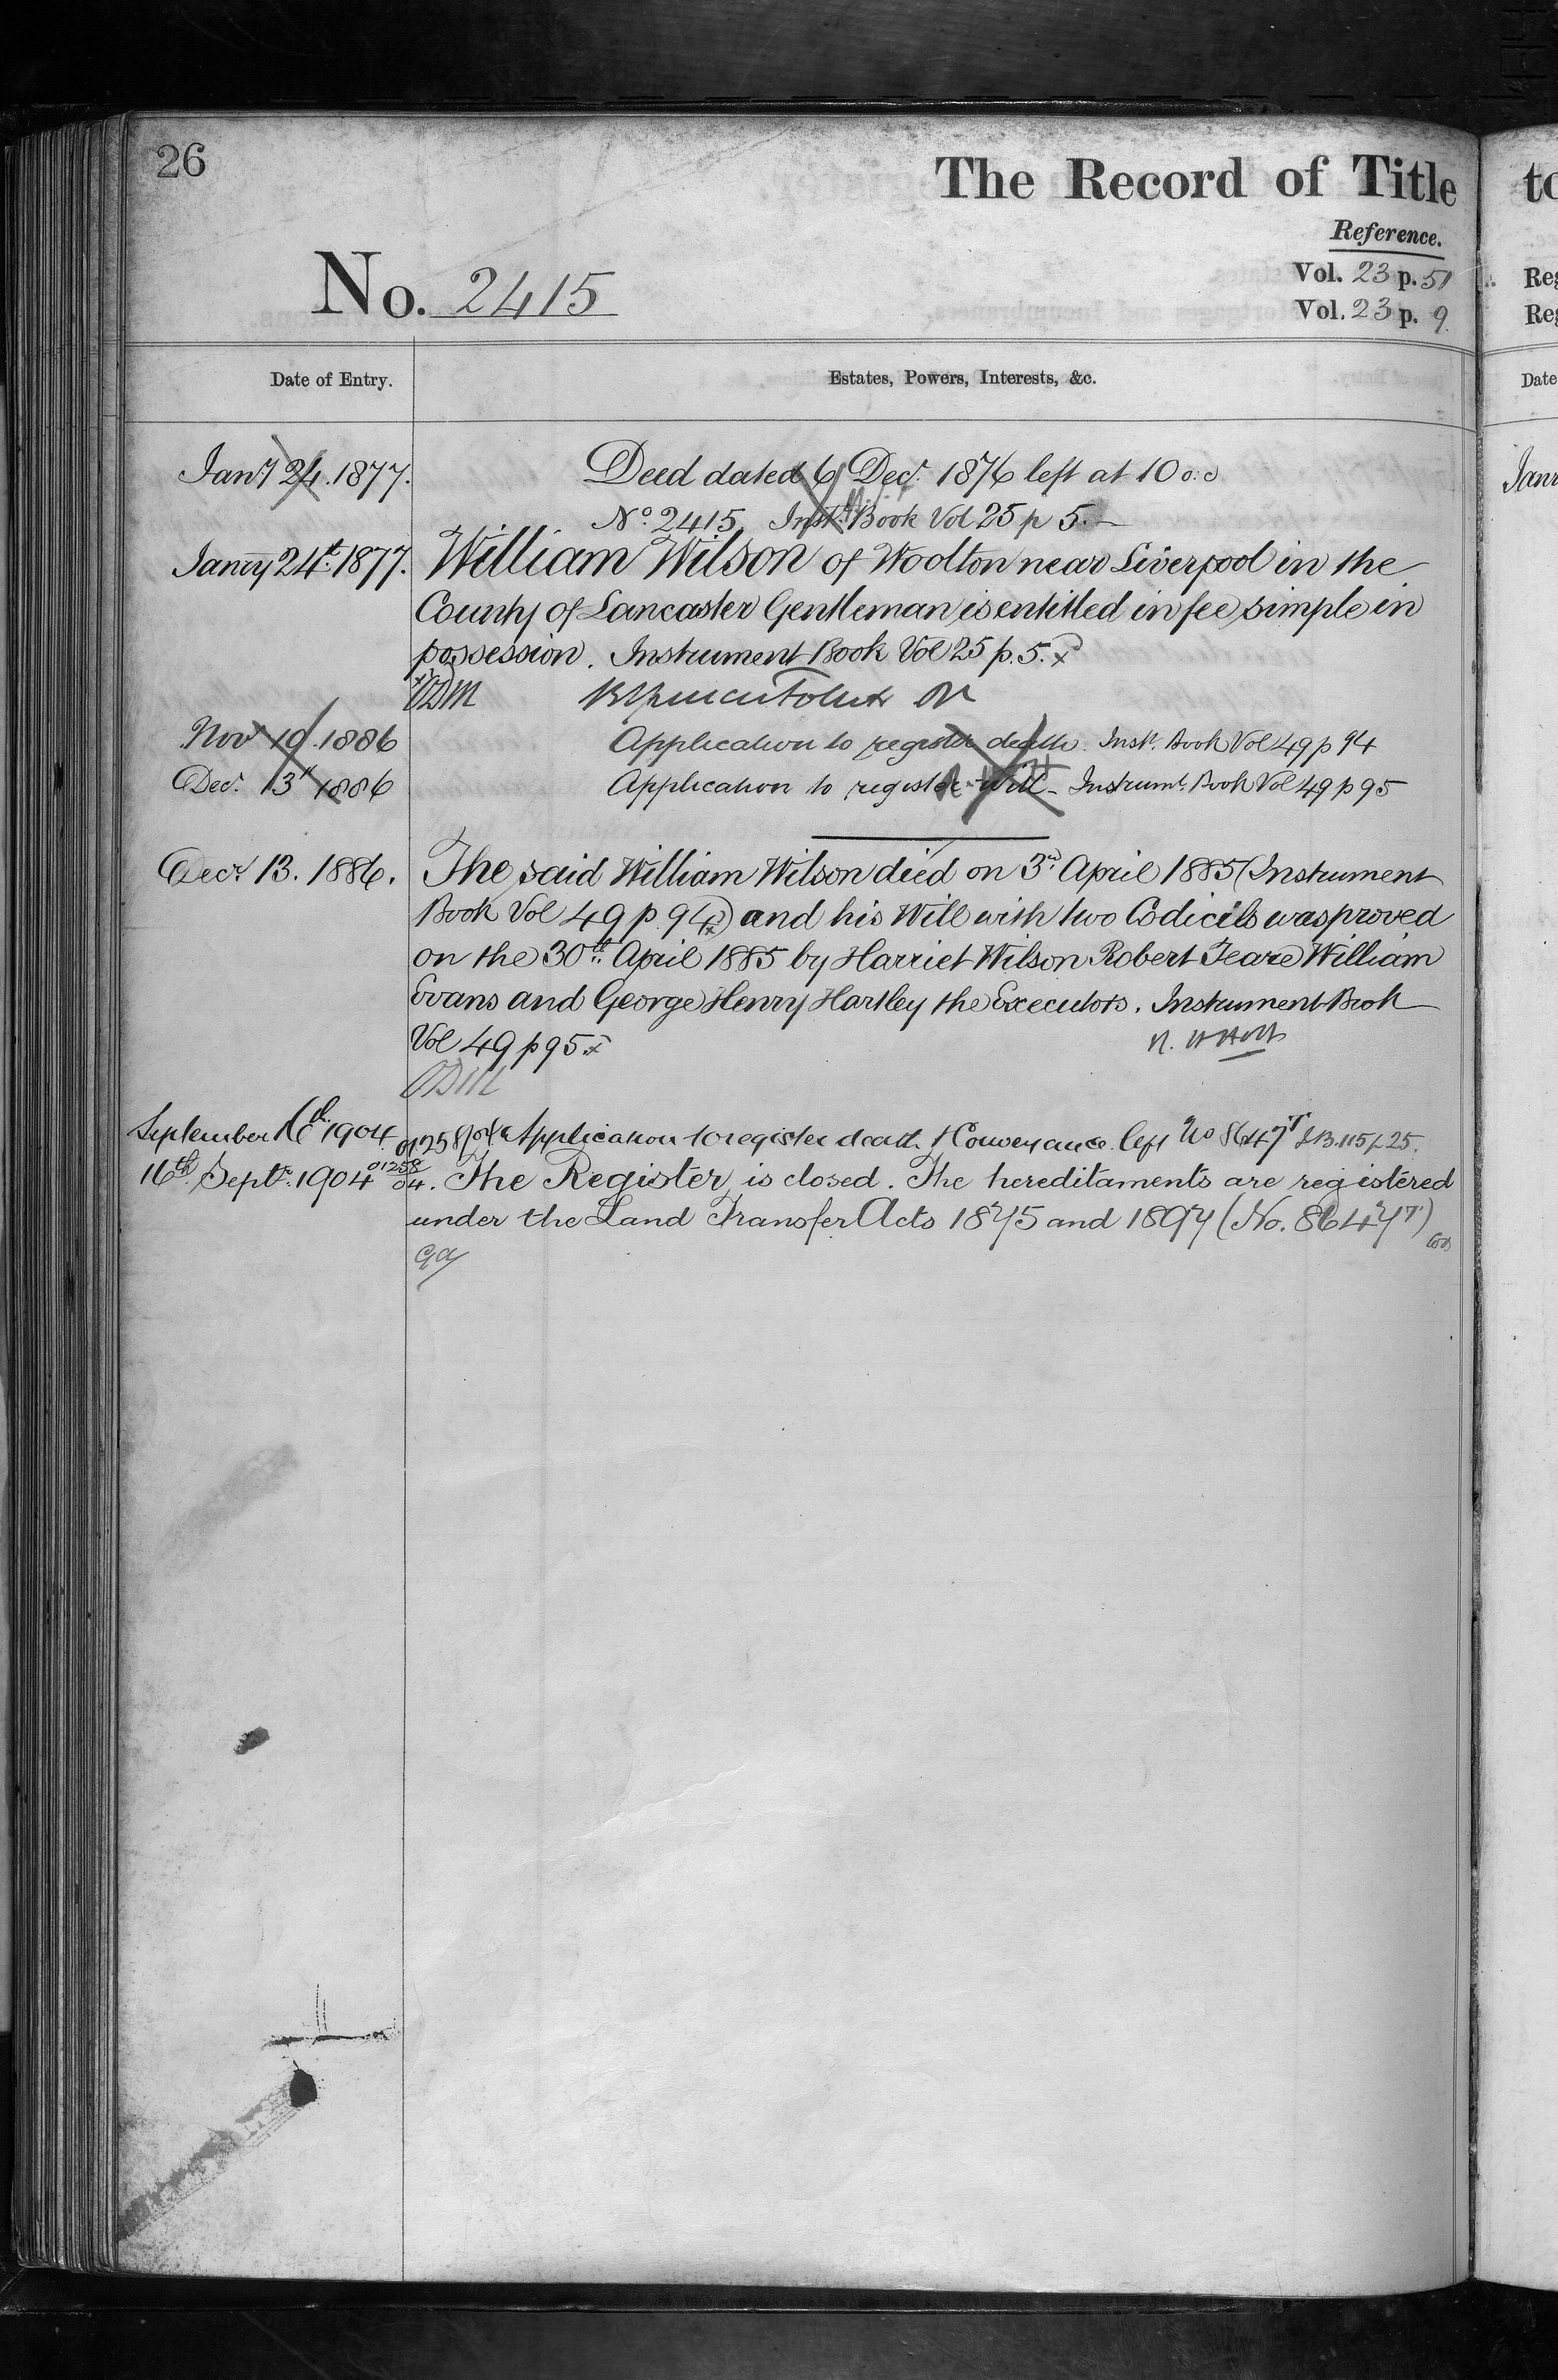 26
The Record of Title
to
Reference.
Vol. 23 p. 51
Reg
No. 2415
Vol. 23 p. 9.
Reg
Date of Entry.
Estates, Powers, Interests, &c.
Date
Jany 24. 1877.
Deed dated 6 Decr. 1876 left at 10 o.c
Janr
No. 2415. Inst. Book Vol 25 p 5.
Janry 24th. 1877.
William Wilson of Woolton near Liverpool in the
County of Lancaster Gentleman is entitled in fee simple in
possession. Instrument Book Vol 25 p. 5.
Nov 19. 1886
Application to register death. Inst. Book Vol 49 p 94
Decr. 13th 1886
Application to register Will - Instrumt. Book Vol 49 p 95
Decr. 13. 1886.
The said William Wilson died on 3rd. April 1885 (Instrument
Book Vol 49 p 94) and his Will with two Codicils was proved
on the 30th. April 1885 by Harriet Wilson Robert Teare William
Evans and George Henry Hartley the Executors. Instrument Book
Vol 49 p 95
September 16th 1904
01258/04 Application to register death & Conveyance left No 86477 I.B. 115 p 25.
16th. Septr. 1904
01258/04. The Register is closed. The hereditaments are registered
under the Land Transfer Acts 1875 and 1897 (No. 86477)